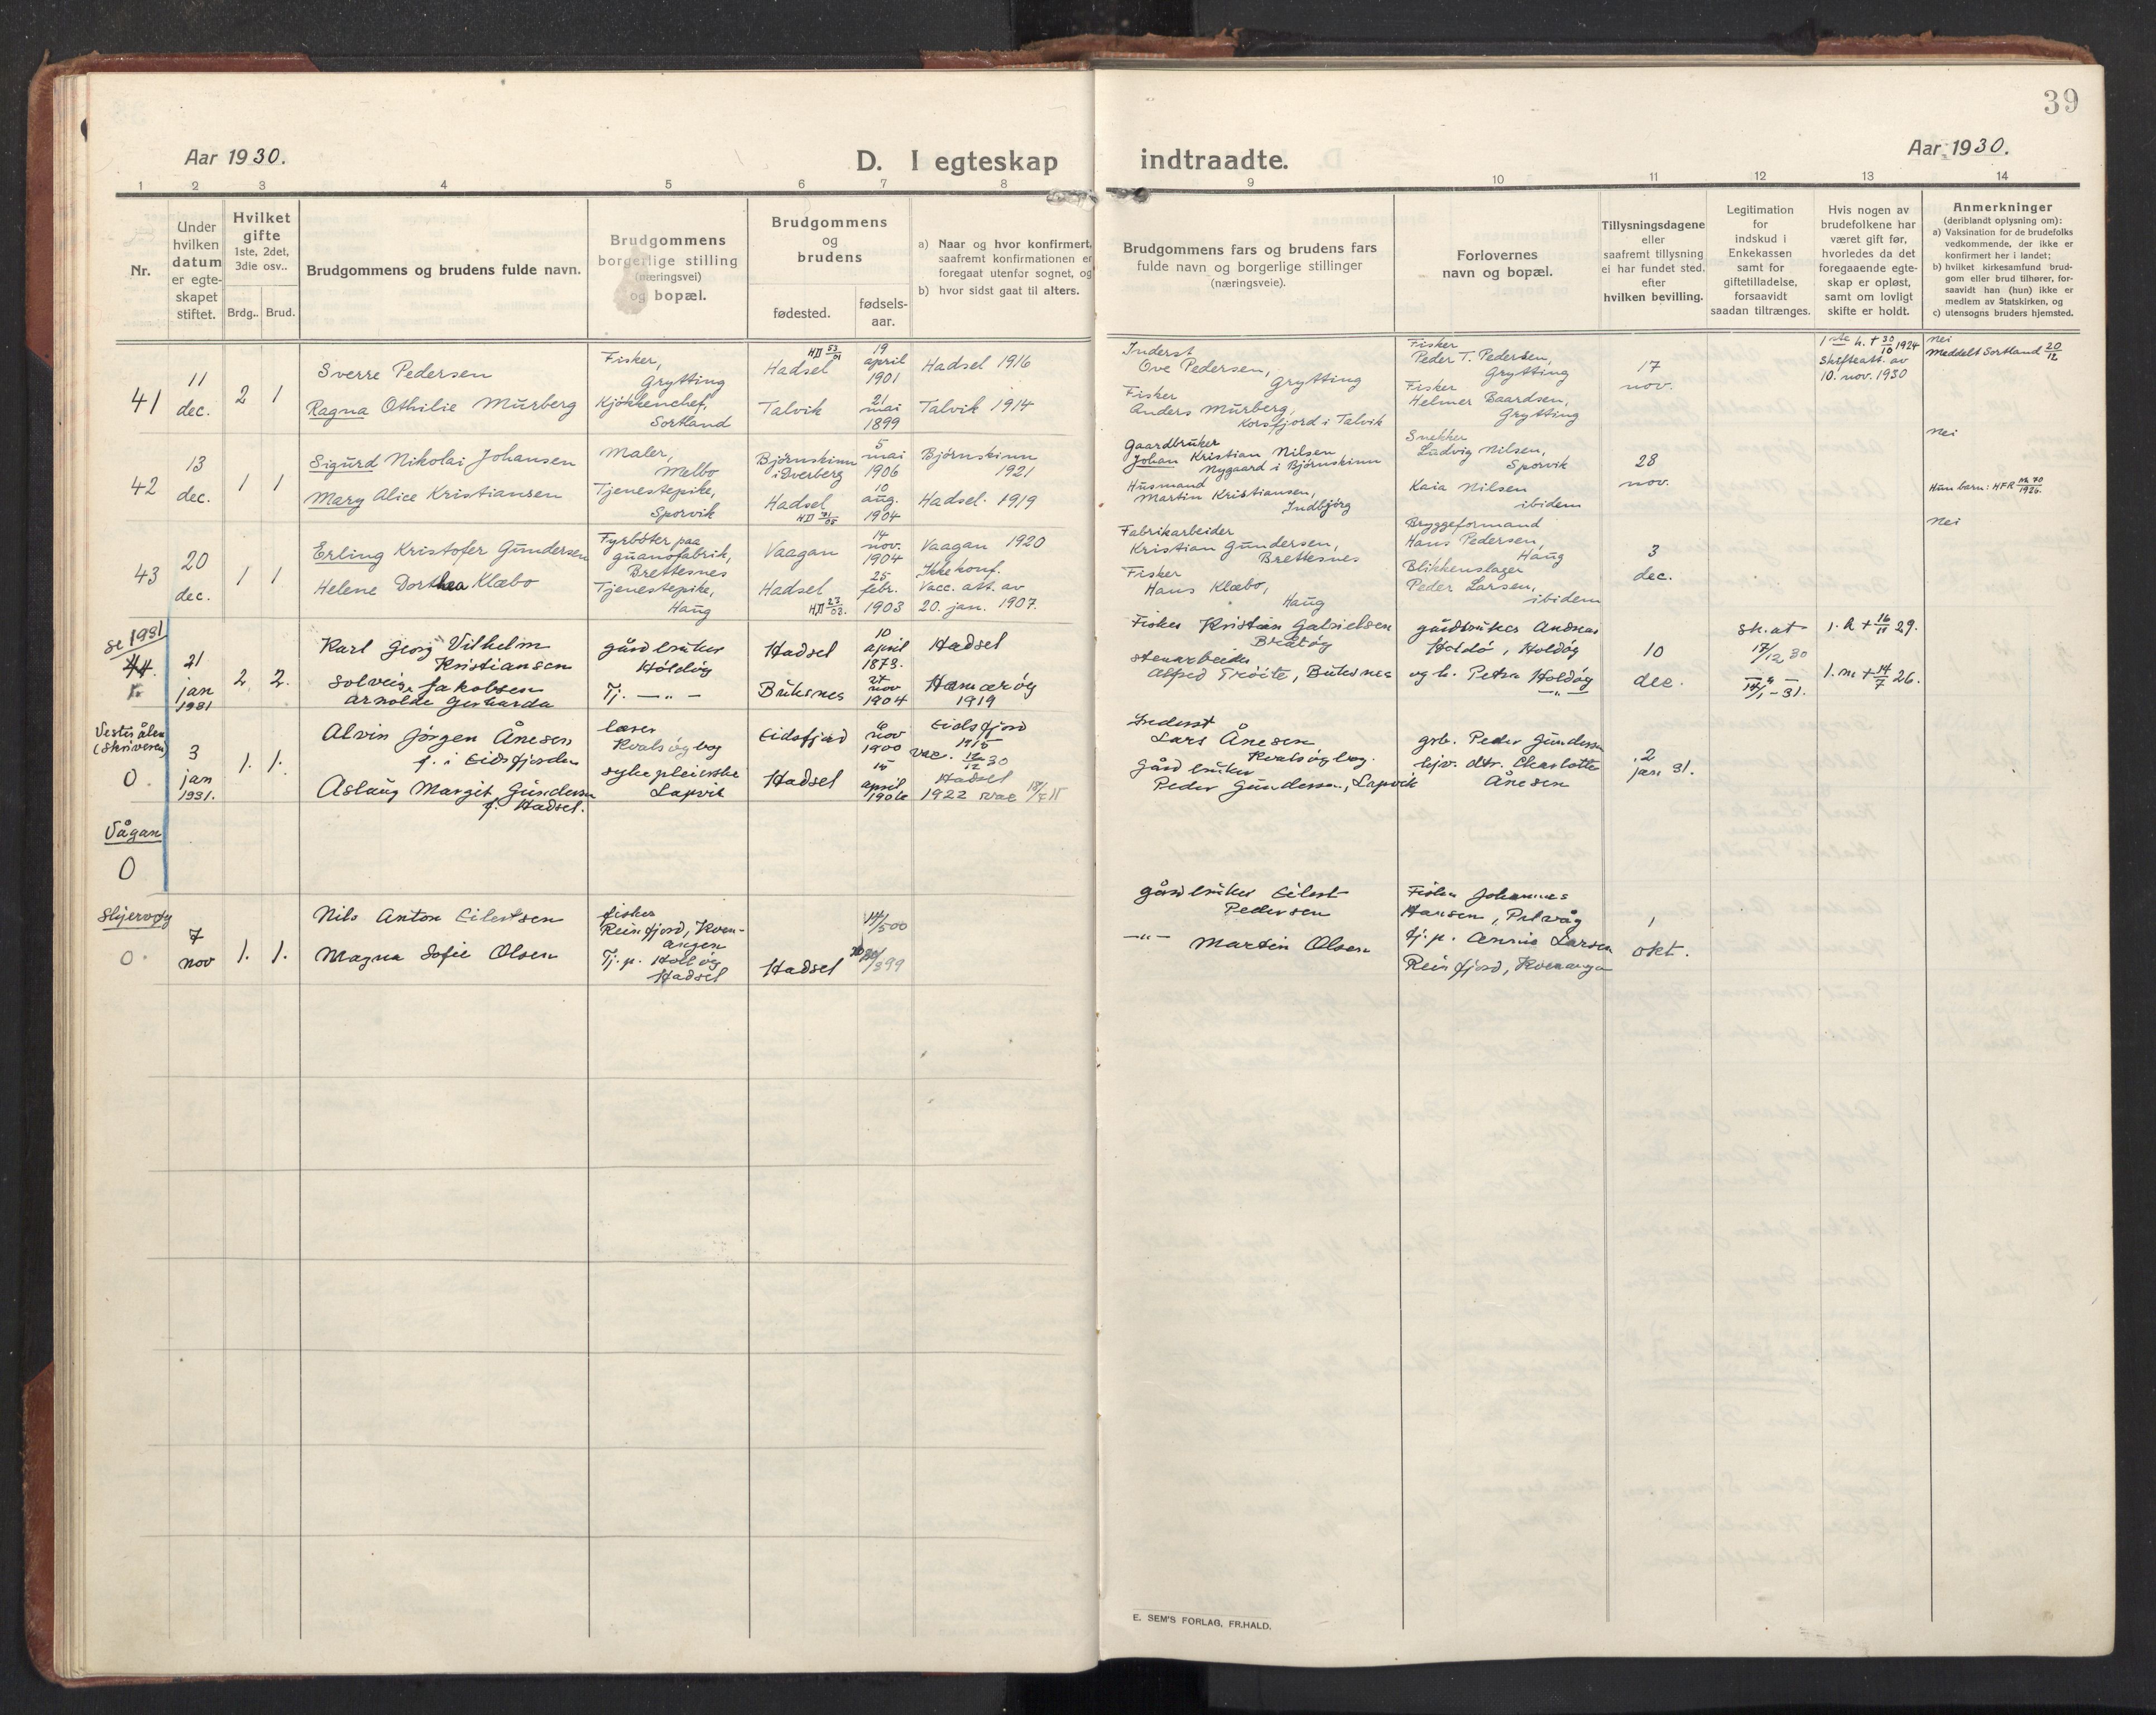 39
Aar 1930.
D. I egteskap indtraadte.
Aar 1930.
1 2 3 4 5 6 7 8 9 10 11 12 13 14
Nr.
Under
hvilken
datum
er egte-
skapet
stiftet.
Hvilket
gifte
1ste, 2det,
3die osv..
Brdg.. Brud.
Brudgommens og brudens fulde navn.
Brudgommens
borgerlige stilling
(næringsvei)
og bopæl.
Brudgommens
og
brudens
fødested.
fødsels-
aar.
a) Naar og hvor konfirmert,
saafremt konfirmationen er
foregaat utenfor sognet, og
b) hvor sidst gaat til alters.
Brudgommens fars og brudens fars
fulde navn og borgerlige stillinger
(næringsveie).
Forlovernes
navn og bopæl.
Tillysningsdagene
eller
saafremt tillysning
ei har fundet sted.
efter
hvilken bevilling.
Legitimation
for
indskud i
Enkekassen
samt for
giftetilladelse,
forsaavidt
saadan tiltrænges.
Hvis nogen av
brudefolkene har
været gift før,
hvorledes da det
foregaaende egte-
skap er opløst,
samt om lovligt
skifte er holdt.
Anmerkninger
(deriblandt oplysning om):
a) Vaksination for de brudefolks
vedkommende, der ikke er
konfirmert her i landet;
b) hvilket kirkesamfund brud-
gom eller brud tilhører, for-
saavidt han (hun) ikke er
medlem av Statskirken, og
c) utensogns bruders hjemsted.
41
11
dec.
2 1
Sverre Pedersen
Ragna Othilie Murberg
Fisker,
Grytting
Kjøkkenchef,
Sortland
HD 53/01
Hadsel
Talvik
19
april
1901
21
mai
1899
Hadsel 1916
Talvik 1914
Inderst
Ove Pedersen,
Grytting
Fisker
Anders Murberg,
Korsfjord i Talvik
Fisker
Peder T. Pedersen,
Grytting
Fisker
Helmer Baardsen,
Grytting
17
nov.
1ste h. + 30/10 1924
Skifteatt. av
10. nov. 1930
Nei
Meddelt Sortland 20/12
42
13
dec.
1 1
Sigurd Nikolai Johansen
Mary Alice Kristiansen
Maler,
Melbo
Tjenestepike,
Sporvik
Bjørnskinn
i Dverberg
Hadsel
HD 71/05
5
mai
1906
10
aug.
1904
Bjørnskinn
1921
Hadsel 1919
Gaardbruker
Johan Kristian Nilsen
Nygaard i Bjørnskinn
Husmand
Martin Kristiansen,
Indbjørg
Snekker
Ludvig Nilsen,
Sporvik
Kaia Nilsen
ibidem
28
nov.
Nei
Hun barn: HFR Nr. 70/1926.
43
20
dec.
1 1
Erling Kristofer Gundersen
Helene Dorthea Klæbo
Fyrbøter paa
guanofabrik,
Brettesnes
Tjenestepike,
Haug
Vaagan
Hadsel
HD 23/03.
14
nov.
1904
25
febr.
1903
Vaagan 1920
Ikke konf.
Vacc. att. av
20. jan. 1907.
Fabrikarbeider
Kristian Gundersen,
Brettesnes
Fisker
Hans Klæbo,
Haug
Bryggeformand
Hans Pedersen,
Haug
Blikkenslager
Peder Larsen,
ibidem
3
dec.
Nei
se 1931
44.
21
jan
1931
2 2.
Karl Georg Vilhelm
Kristiansen
Solveig Jakobsen
Arnolde Gerharda
gårdbruker
Holdøy
Tj. — " —
Hadsel
Buksnes
10
april
1873.
27
nov
1904
Hadsel
Hamarøy
1919
Fisker Kristian Gabrielsen
Bratøy
stenarbeider
Alfred Trøite, Buksnes
gårdbruker Andreas
Holdø, Holdøy
og h. Petra Holdøy
— " —
10
dec.
sk. at
17/12 30
— " —
14/1 - 31.
1. h + 16/11 29.
1. m + 14/7 26.
Vesterålen
(Skriveren)
0.
3
jan
1931.
1. 1.
Alvin Jørgen Ånesen
f. i Eidsfjorden
Aslaug Margit Gundersen
f. Hadsel.
lærer
Kvalsøybog
sykepleierske
Lapvik
Eidsfjord
Hadsel
6
nov
1900
15
april
1906
Eidsfjord
1915
vac. 16/12 30
Hadsel
1922 vac 18/7 11
Inderst
Lars Ånesen
Kvalsøybog.
Gårdbruker
Peder Gundersen, Lapvik
grb. Peder Gundersen
hjv. dtr. Charlotte
Ånesen
2
jan 31.
Vågan
0
Skjervøy
0.
7
nov
1. 1.
Nils Anton Eilertsen
Magna Sofie Olsen
fisker
Reinfjord, Kven-
angen
Tj. p. Holdøy
Hadsel
Hadsel
14/5 00
gårdbruker Eilert
Pedersen
— " — Martin Olsen
Fisker Johannes
Hansen,
tj. p. Annie Larsen
Reinfjord, Kvenangen
1
okt.
E. SEM'S FORLAG, FR.HALD.